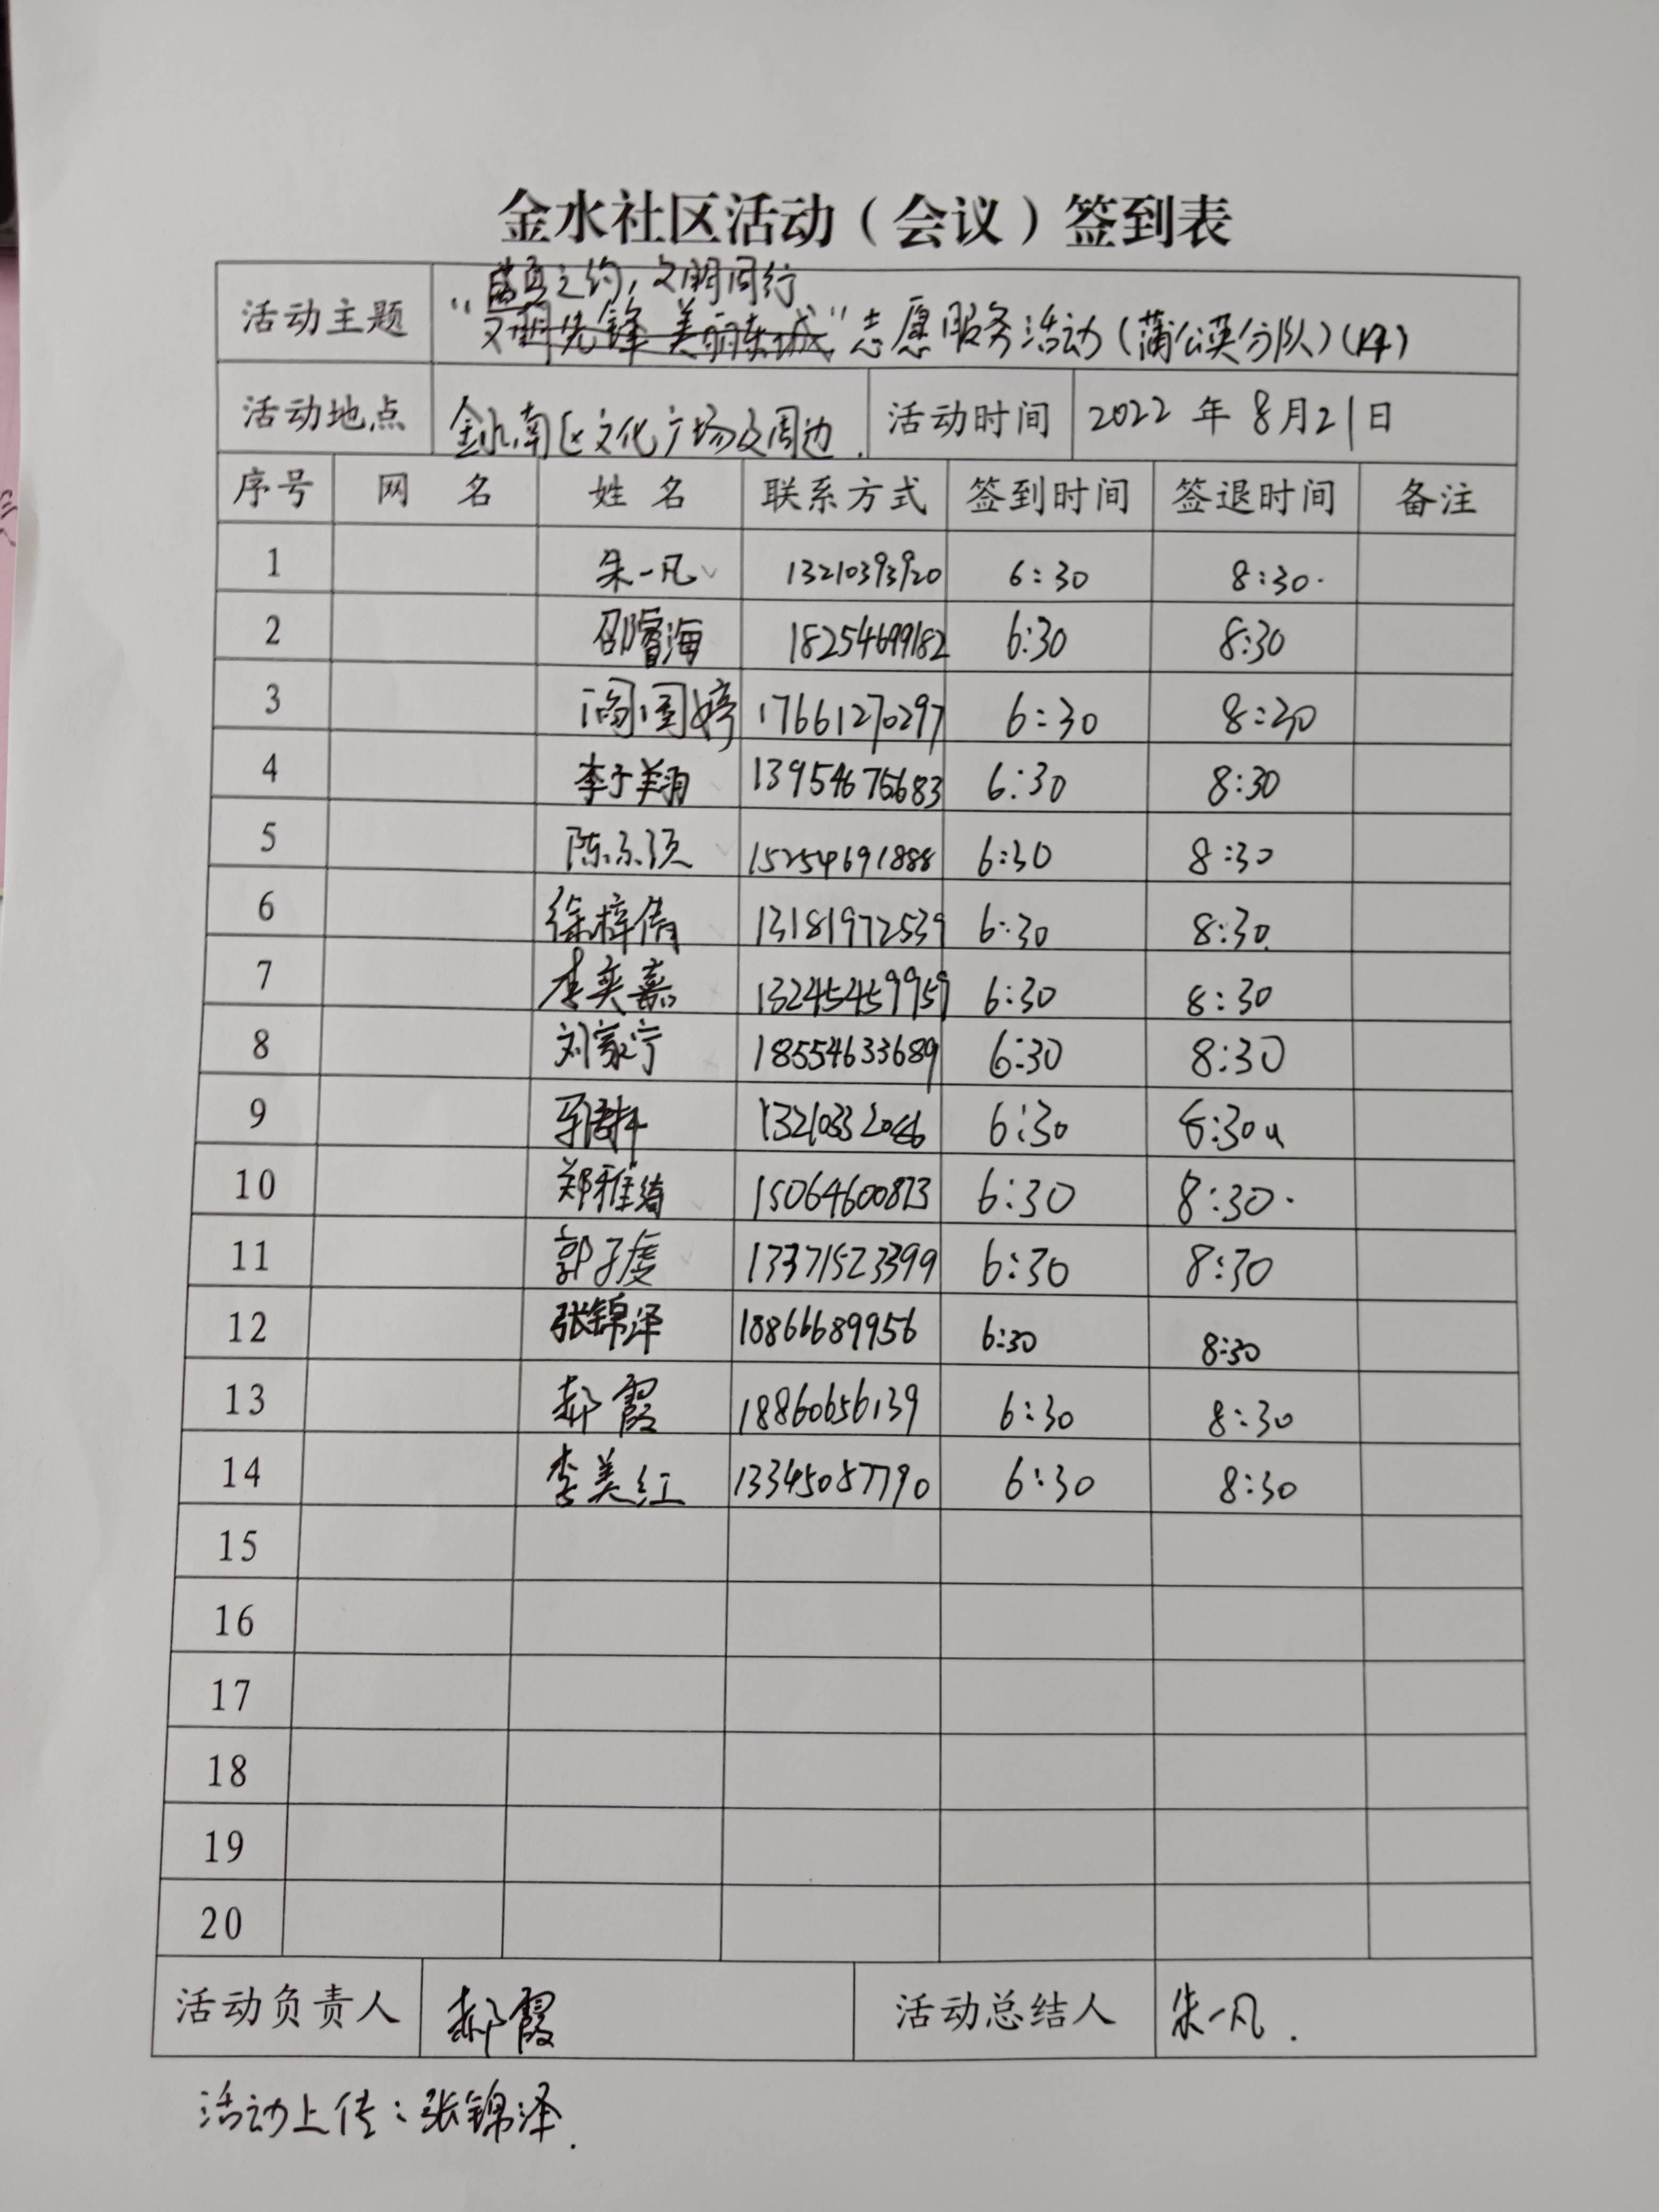 金水社区活动（会议）签到表
盛夏之约，文明同行
活动主题 “文明先锋 美丽东城”志愿服务活动(蒲公英分队)(14)
活动地点 金水南区文化广场及周边. 活动时间 2022 年 8月21日
序号 网 名 姓 名 联系方式 签到时间 签退时间 备注
1 朱一凡 13210393920 6:30 8:30.
2 邵睿海 18254699182 6:30 8:30
3 17661270297 6:30 8:30
4 李于翔 13954675683 6:30 8:30
5 15254691888 6:30 8:30
6 徐梓倩 13181972539 6:30 8:30
7 李奕嘉 13245459959 6:30 8:30
8 刘家宁 18554633689 6:30 8:30
9 6:30
10 郑雅绮 15064600813 6:30 8:30.
11 郭子虔 13371523399 6:30 8:30
12 张锦泽 18866689956 6:30 8:30
13 郝霞 18860656139 6:30 8:30
14 李美红 13345087790 6:30 8:30
15
16
17
18
19
20
活动负责人 郝霞 活动总结人 朱一凡.
活动上传：张锦泽.